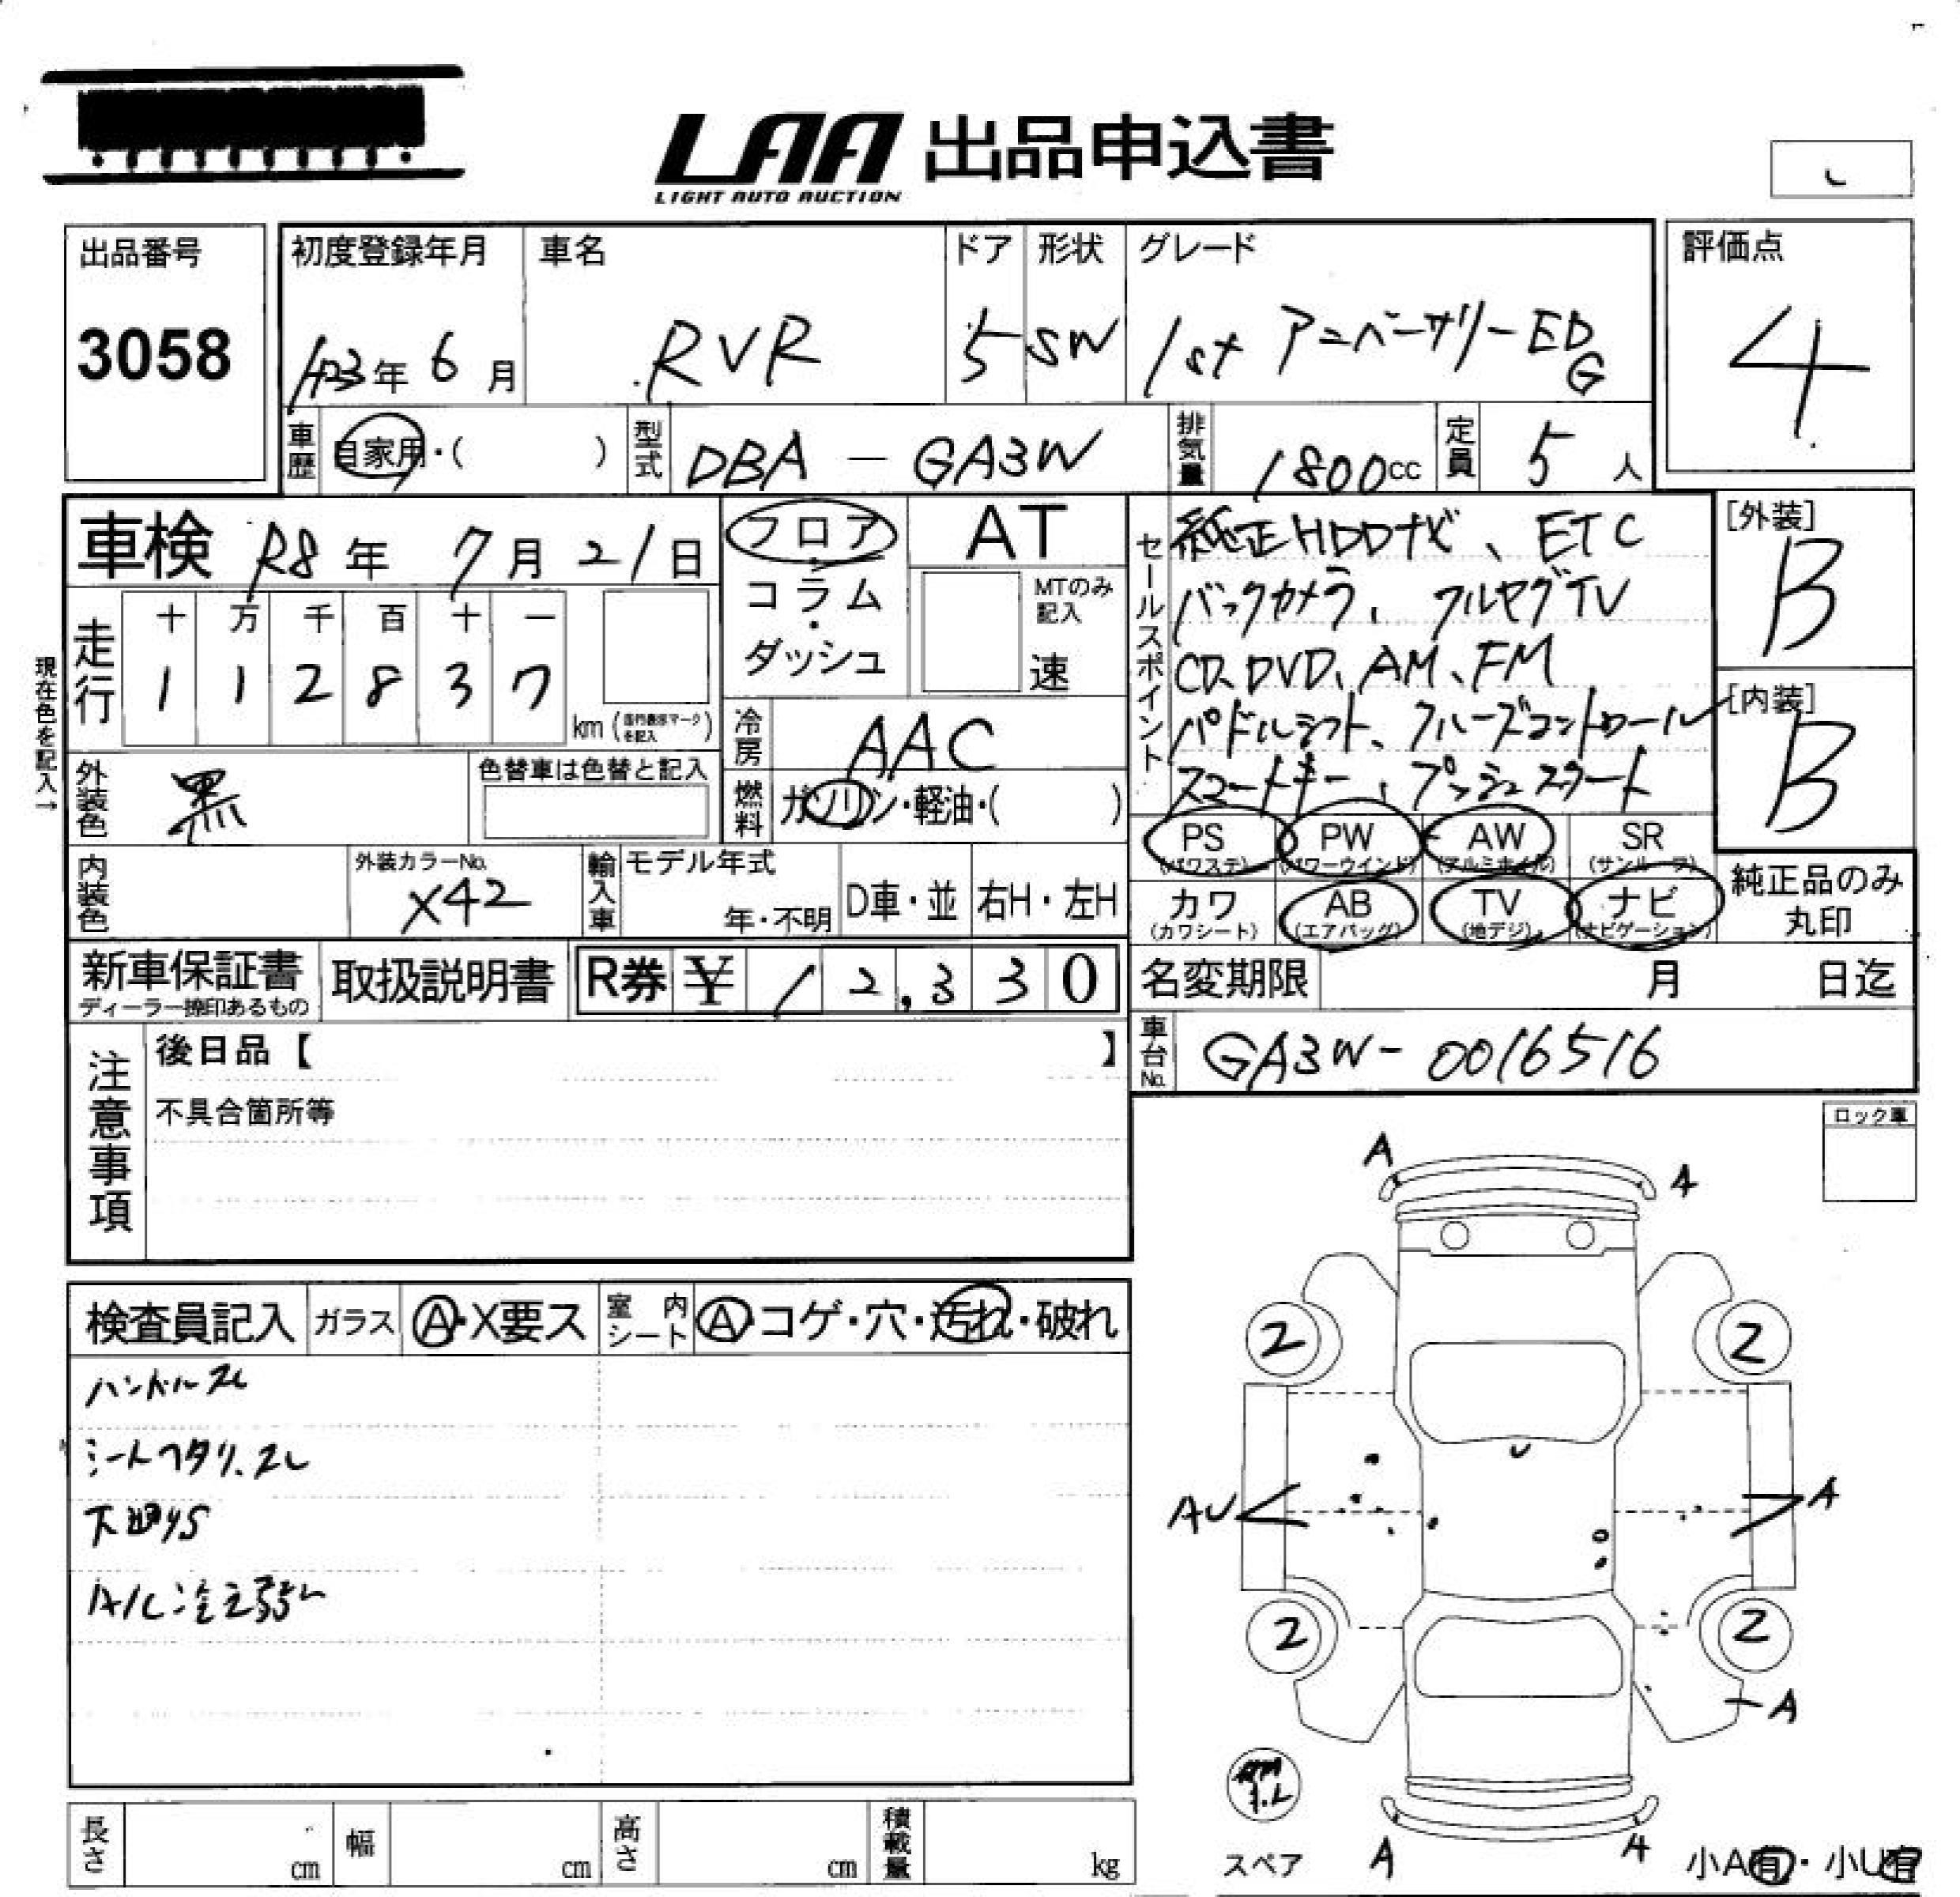 LAA 出品申込書
LIGHT AUTO AUCTION
出品番号
3058
初度登録年月
H23年 6月
車名
RVR
ドア
5
形状
SW
グレード
1st アニバーサリーED
G
評価点
4
車歴
自家用・( )
型式
DBA - GA3W
排気量
1800cc
定員
5人
車検 R8年 7月21日
走行
十 万 千 百 十 一
1 1 2 8 3 7
km (走行表示マークを記入)
現在色を記入→
フロア
コラム・
ダッシュ
AT
MTのみ
記入
速
冷房
AAC
燃料
ガソリン・軽油・( )
外装色
黒
色替車は色替と記入
内装色
外装カラーNo.
X42
輸入車
モデル年式
年・不明
D車・並
右H・左H
セールスポイント
純正HDDナビ、ETC
バックカメラ、フルセグTV
CD、DVD、AM、FM
パドルシフト、クルーズコントロール
スマートキー、プッシュスタート
[外装]
B
[内装]
B
PS
(パワステ)
PW
(パワーウインド)
AW
(アルミホイル)
SR
(サンルーフ)
カワ
(カワシート)
AB
(エアバッグ)
TV
(地デジ)
ナビ
(ナビゲーション)
純正品のみ
丸印
新車保証書
ディーラー捺印あるもの
取扱説明書
R券 ¥ 12,330
名変期限
月 日迄
車台No.
GA3W-0016516
注意事項
後日品【 】
不具合箇所等
ロック車
検査員記入
ガラス
A・X要ス
室内シート
A・コゲ・穴・汚れ・破れ
ハンドルスレ
シートヘタリ、スレ
下廻りS
A/C冷え弱い
A
A
2
2
AU
A
2
2
A
スペア
A
A
小A有・小U有
長さ
cm
幅
cm
高さ
cm
積載量
kg